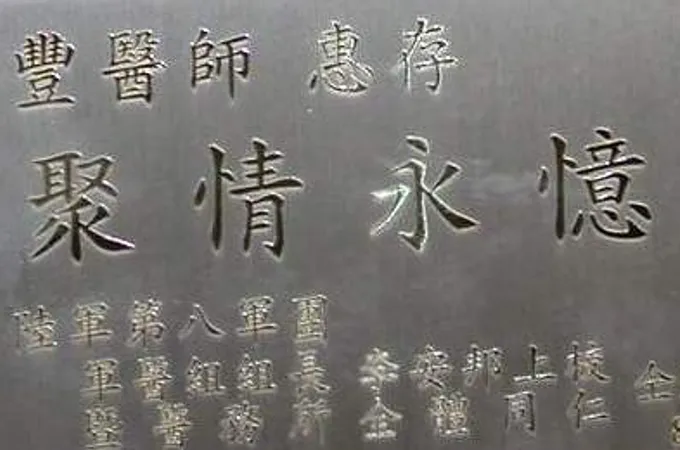 豐醫師 惠存
聚情永憶
陸軍第八軍團
軍醫組組長李安邦上校 仝
暨醫務所全體同仁